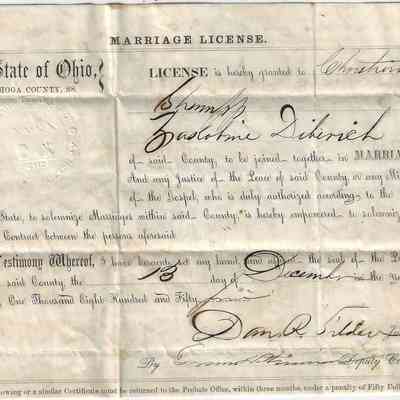 MARRIAGE LICENSE.
State of Ohio,
HOGA COUNTY, SS.
LICENSE is hereby granted to
Diberich
of said County, to be joined together in MARRIA
And any Justice of the Peace of said County, or any Min
of the Gospel, who is duly authorized according to the
State, to solemnize Marriages within said County, is hereby empowered to solemniz
Contract between the persons aforesaid.
Testimony Whereof, I have hereunto set my hand and affixed the seal of the
said County, the 13 day of December in the
One Thousand Eight Hundred and Fifty
Dan R. Tilden
By Deputy Cl
owing or a similar Certificate must be returned to the Probate Office, within three months, under a penalty of Fifty Dol